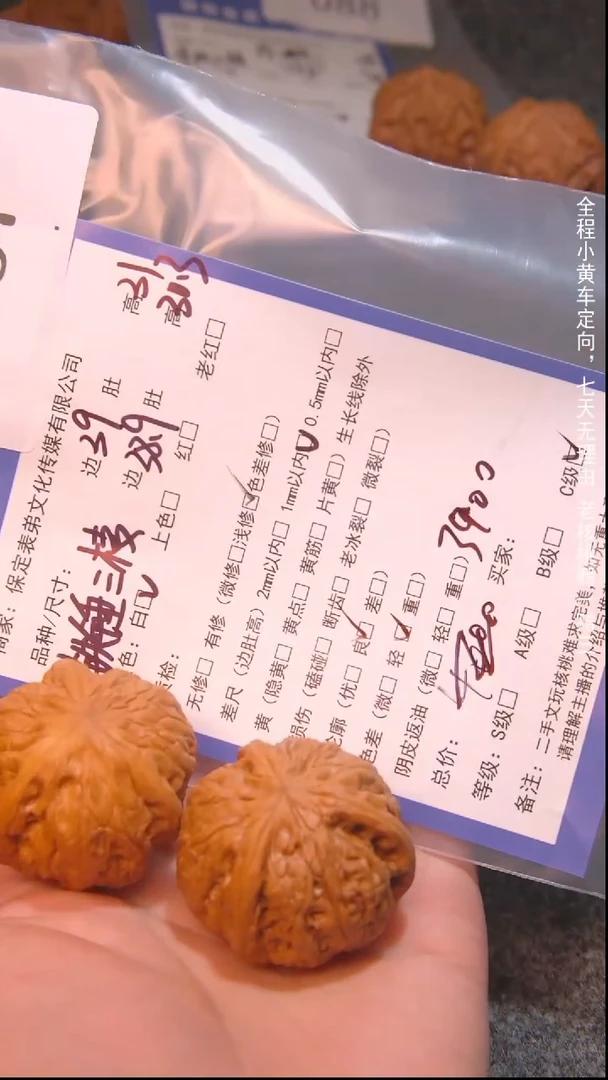 商家：保定表弟文化传媒有限公司
品种/尺寸： 三棱 边39 肚 高31.3
边38.9 肚 高31.3
色：白☑ 上色□ 红□ 老红□
质检：
无修□ 有修（微修□浅修☑色差修□）
差尺（边肚高）2mm以内□ 1mm以内☑ 0.5mm以内□
黄（隐黄□ 黄点□ 黄筋□ 片黄□）生长线除外
损伤（磕碰□ 断齿□ 老冰裂□ 微裂□）
轮廓（优□ 良☑ 差□）
色差（微□ 轻☑ 重□）
阴皮返油（微□ 轻□ 重□）
总价： 3900
等级：S级□ A级□ B级□ C级☑
买家：
备注：二手文玩核桃难求完美，如无
请理解主播的介绍与
全程小黄车定向，七天无理由